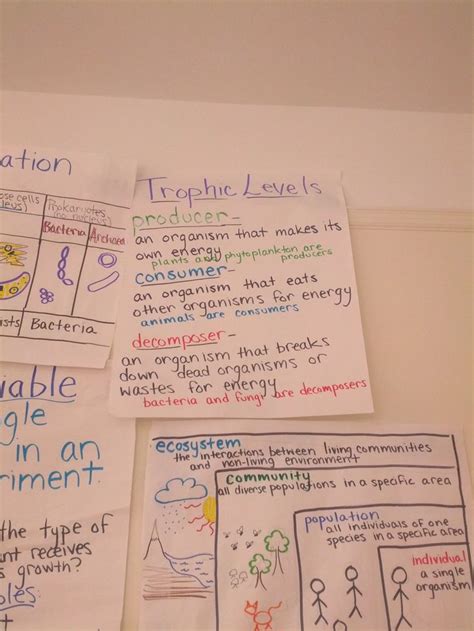 ation
ose cells
leus)
Prokaryotes
(no nucleus)
Bacteria
Archaea
ists
Bacteria
Trophic Levels
producer-
an organism that makes its
own energy
plants and phytoplankton are
producers
consumer-
an organism that eats
other organisms for energy
animals are consumers
decomposer-
an organism that breaks
down dead organisms or
wastes for energy
bacteria and fungi are decomposers
iable
gle
in an
riment.
the type of
nt receives
s growth?
les:
ecosystem
the interactions between living communities
and non-living environment
community
all diverse populations in a specific area
population
all individuals of one
species in a specific area
individual
a single
organism